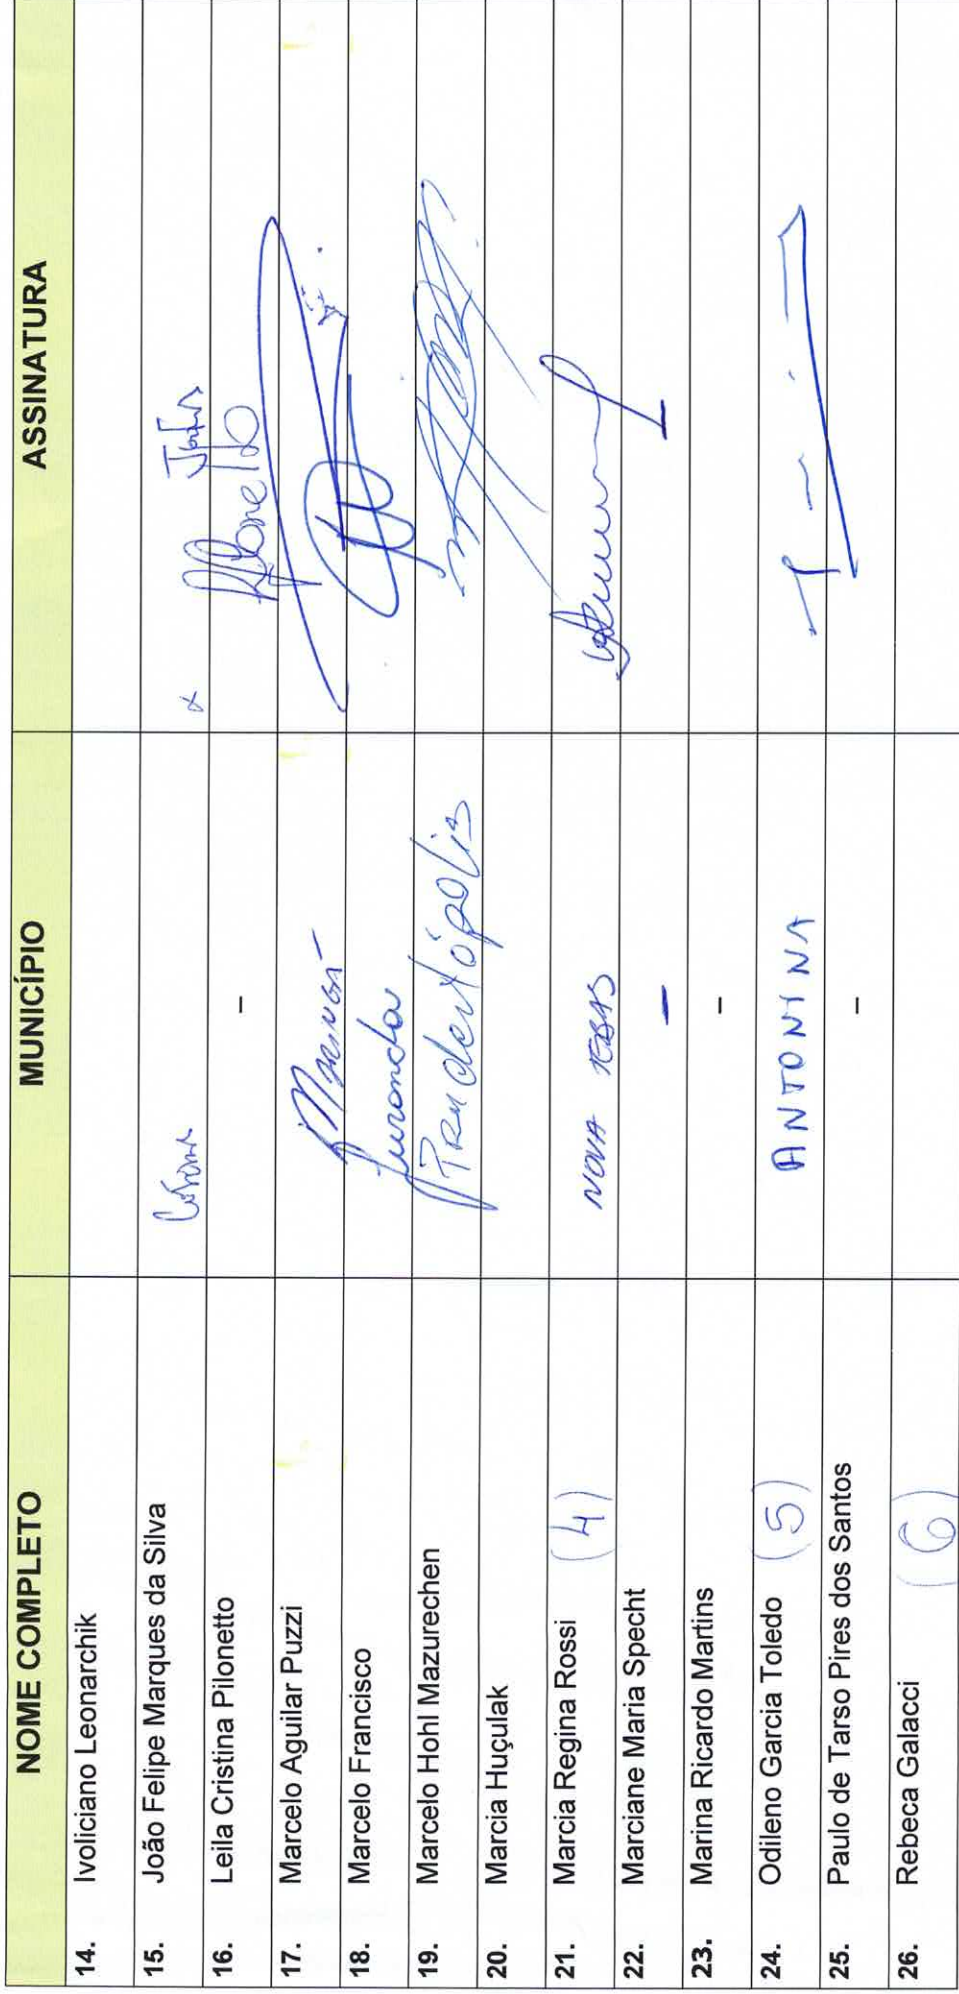 NOME COMPLETO MUNICÍPIO ASSINATURA
14. Ivoliciano Leonarchik
15. João Felipe Marques da Silva x
16. Leila Cristina Pilonetto -
17. Marcelo Aguilar Puzzi Maringá
18. Marcelo Francisco Juranda
19. Marcelo Hohl Mazurechen Prudentópolis
20. Marcia Huçulak
21. Marcia Regina Rossi (4) NOVA TEBAS
22. Marciane Maria Specht -
23. Marina Ricardo Martins -
24. Odileno Garcia Toledo (5) ANTONINA
25. Paulo de Tarso Pires dos Santos -
26. Rebeca Galacci (6)